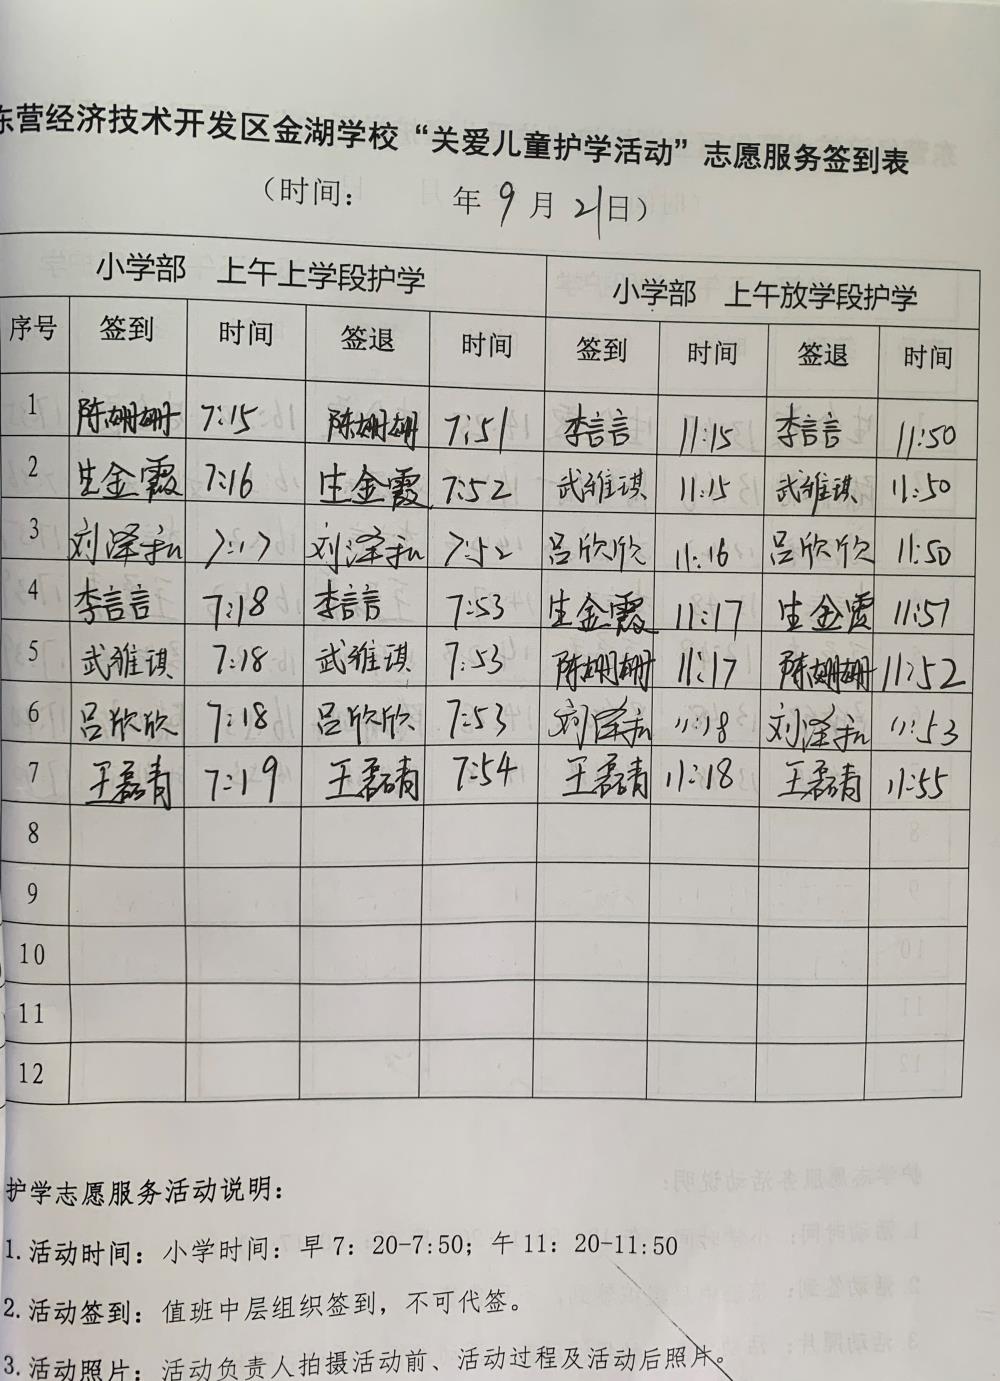 东营经济技术开发区金湖学校“关爱儿童护学活动”志愿服务签到表
（时间： 年 9 月 21日）
小学部 上午上学段护学 小学部 上午放学段护学
序号 签到 时间 签退 时间 签到 时间 签退 时间
1 陈姗姗 7:15 陈姗姗 7:51 李言言 11:15 李言言 11:50
2 生金霞 7:16 生金霞 7:52 武维琪 11:15 武维琪 11:50
3 刘泽和 7:17 刘泽和 7:52 吕欣欣 11:16 吕欣欣 11:50
4 李言言 7:18 李言言 7:53 生金霞 11:17 生金霞 11:51
5 武维琪 7:18 武维琪 7:53 陈姗姗 11:17 陈姗姗 11:52
6 吕欣欣 7:18 吕欣欣 7:53 刘泽和 11:18 刘泽和 11:53
7 王磊青 7:19 王磊青 7:54 王磊青 11:18 王磊青 11:55
8
9
10
11
12
护学志愿服务活动说明：
1.活动时间：小学时间：早7：20-7:50；午11：20-11:50
2.活动签到：值班中层组织签到，不可代签。
3.活动照片：活动负责人拍摄活动前、活动过程及活动后照片。